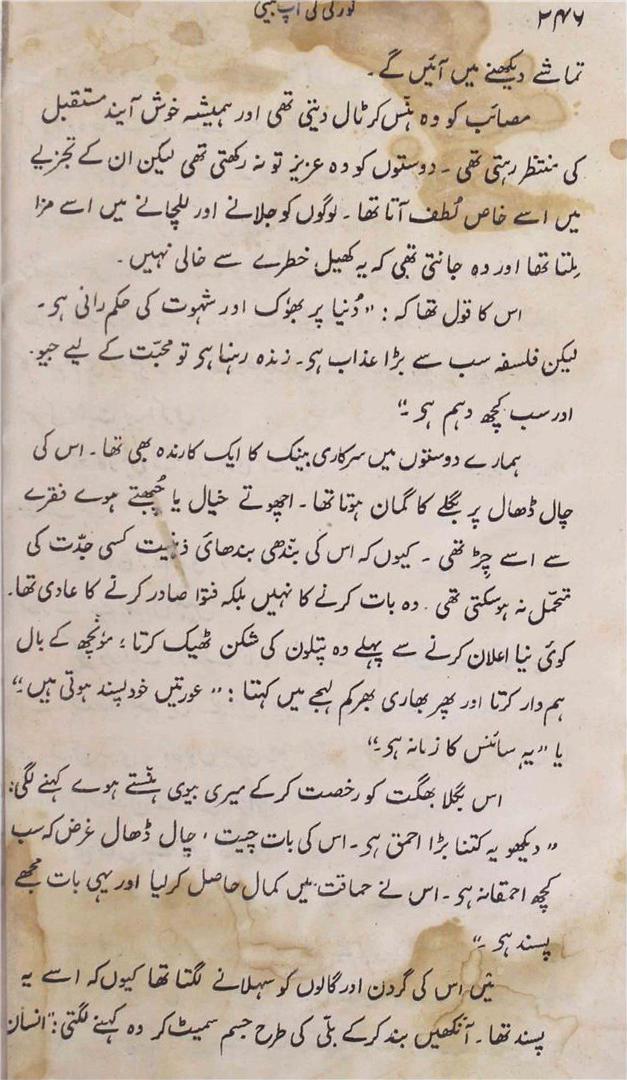 ۲۴۶
نور کی کی آپ بیتی
تماشے دیکھنے میں آئیں گے۔
مصائب کو وہ ہنس کر ٹال دیتی تھی اور ہمیشہ خوش آیند مستقبل
کی منتظر رہتی تھی۔ دوستوں کو وہ عزیز تو نہ رکھتی تھی لیکن ان کے تجزیے
میں اسے خاص لُطف آتا تھا۔ لوگوں کو جلانے اور للچانے میں اسے مزا
مِلتا تھا اور وہ جانتی تھی کہ یہ کھیل خطرے سے خالی نہیں۔
اس کا قول تھا کہ: "دُنیا پر بھوٗک اور شہوت کی حکم رانی ہی۔
لیکن فلسفہ سب سے بڑا عذاب ہی۔ زندہ رہنا ہی تو محبّت کے لیے جیو۔
اور سب کچھ وہم ہی۔"
ہمارے دوستوں میں سرکاری بینک کا ایک کارندہ بھی تھا۔ اس کی
چال ڈھال پر بگلے کا گمان ہوتا تھا۔ اچھوتے خیال یا چُبھتے ہوے فقرے
سے اسے چِڑ تھی۔ کیوں کہ اس کی بندھی بندھائ ذہنیت کسی جدّت کی
متحمّل نہ ہو سکتی تھی۔ وہ بات کرنے کا نہیں بلکہ فتوا صادر کرنے کا عادی تھا۔
کوئ نیا اعلان کرنے سے پہلے وہ پتلون کی شکن ٹھیک کرتا؛ موٗنچھ کے بال
ہم وار کرتا اور پھر بھاری بھرکم لہجے میں کہتا: "عورتیں خود پسند ہوتی ہیں۔"
یا "یہ سائنس کا زمانہ ہی۔"
اس بگلا بھگت کو رخصت کر کے میری بیوی ہنستے ہوے کہنے لگی:
"دیکھو یہ کتنا بڑا احمق ہی۔ اس کی بات چیت، چال ڈھال غرض کہ سب
کچھ احمقانہ ہی۔ اس نے حماقت میں کمال حاصل کر لیا اور یہی بات مجھے
پسند ہی۔"
میں اس کی گردن اور گالوں کو سہلانے لگتا تھا کیوں کہ اسے یہ
پسند تھا۔ آنکھیں بند کر کے بلّی کی طرح جسم سمیٹ کر وہ کہنے لگتی: "انسان